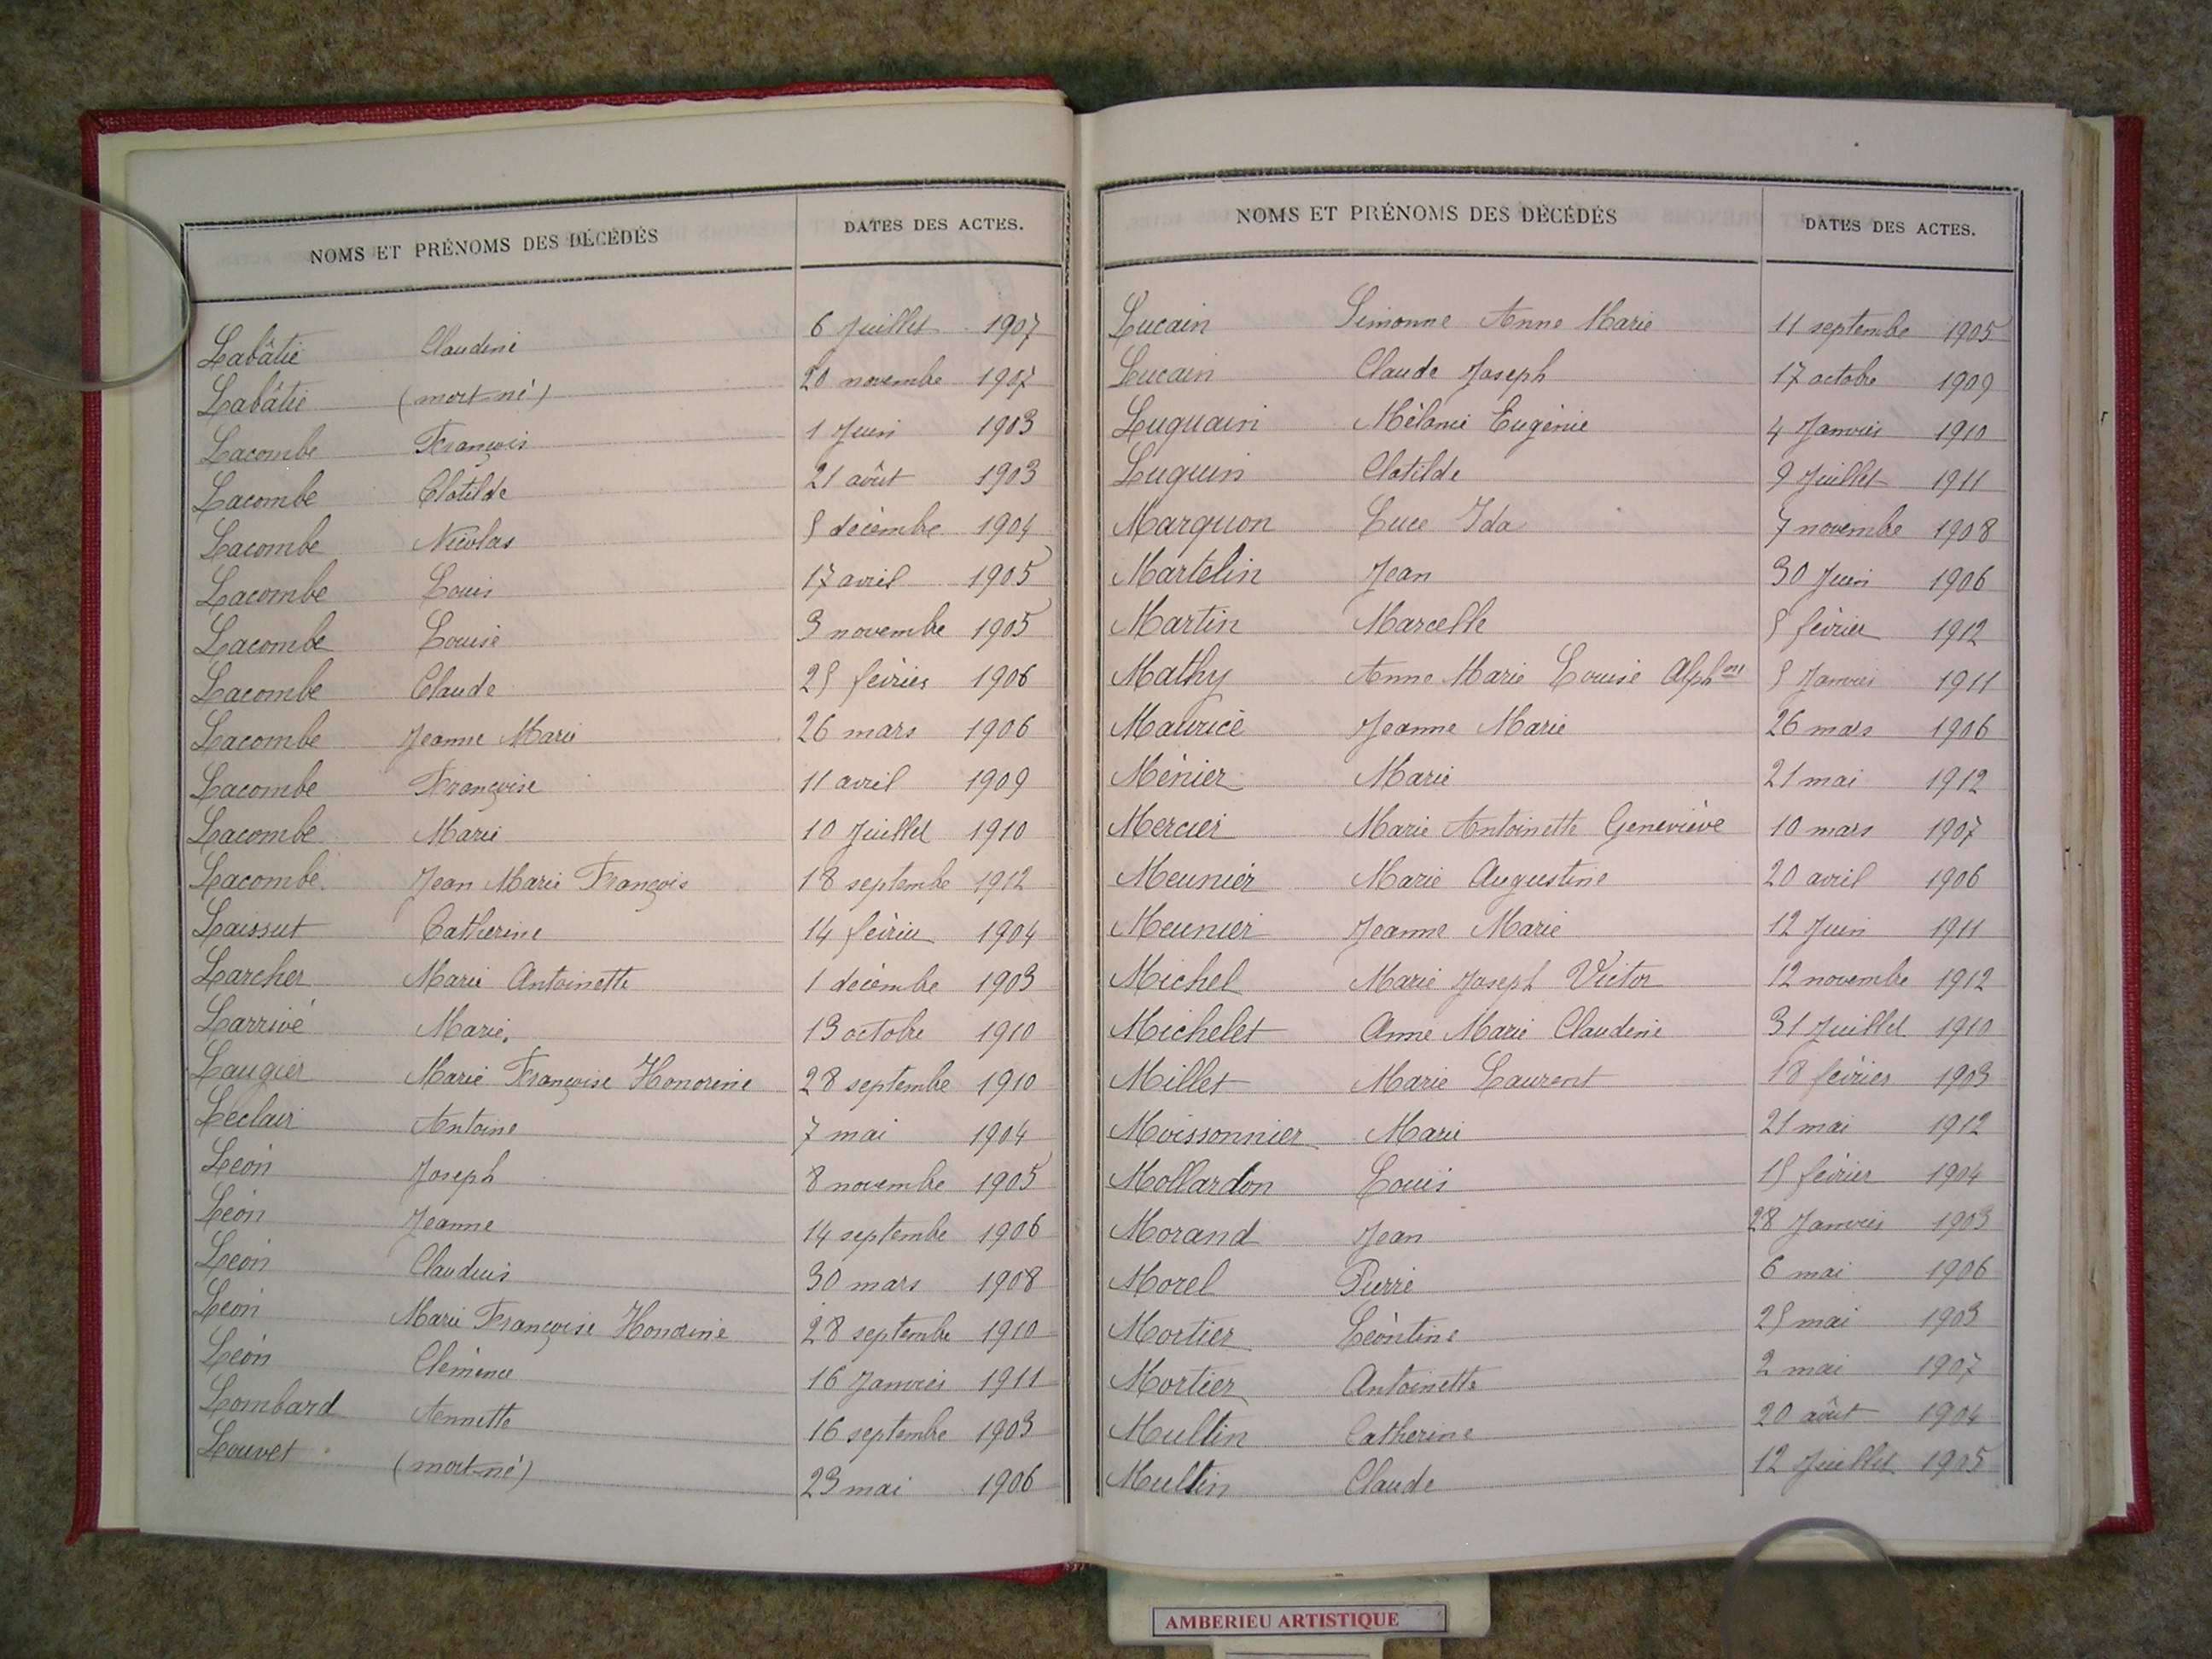 NOMS ET PRÉNOMS DES DÉCÉDÉS DATES DES ACTES.
Labâtie Claudine 6 Juillet 1907
Labâtie (mort-né) 20 novembre 1907
Lacombe François 1 Juin 1903
Lacombe Clotilde 21 août 1903
Lacombe Nicolas 5 décembre 1904
Lacombe Louis 17 avril 1905
Lacombe Louise 3 novembre 1905
Lacombe Claude 25 février 1906
Lacombe Jeanne Marie 26 mars 1906
Lacombe Françoise 11 avril 1909
Lacombe Marie 10 Juillet 1910
Lacombe Jean Marie François 18 septembre 1912
Laissut Catherine 14 février 1904
Larcher Marie Antoinette 1 décembre 1903
Larrivé Marie. 13 octobre 1910
Laugier Marie Françoise Honorine 28 septembre 1910
Leclair Antoine 7 mai 1904
Léon Joseph 8 novembre 1905
Léon Jeanne 14 septembre 1906
Léon Claudius 30 mars 1908
Léon Marie Françoise Honorine 28 septembre 1910
Léon Clémence 16 Janvier 1911
Lombard Annette 16 septembre 1903
Louvet (mort-né) 23 mai 1906
NOMS ET PRÉNOMS DES DÉCÉDÉS DATES DES ACTES.
Lucain Simonne Anne Marie 11 septembre 1905
Lucain Claude Joseph 17 octobre 1909
Luquain Mélanie Eugénie 4 Janvier 1910
Luquin Clotilde 9 Juillet 1911
Marguon Luce Ida 7 novembre 1908
Martelin Jean 30 Juin 1906
Martin Marcelle 5 février 1912
Mathy Anne Marie Louise Alph.ne 5 Janvier 1911
Maurice Jeanne Marie 26 mars 1906
Ménier Marie 21 mai 1912
Mercier Marie Antoinette Geneviève 10 mars 1907
Meunier Marie Augustine 20 avril 1906
Meunier Jeanne Marie 12 Juin 1911
Michel Marie Joseph Victor 12 novembre 1912
Michelet Anne Marie Claudine 31 Juillet 1910
Millet Marie Laurent 18 février 1903
Moissonnier Marie 21 mai 1912
Mollardon Louis 15 février 1904
Morand Jean 28 Janvier 1903
Morel Pierre 6 mai 1906
Mortier Léontine 25 mai 1903
Mortier Antoinette 2 mai 1907
Multin Catherine 20 août 1904
Multin Claude 12 Juillet 1905
AMBERIEU ARTISTIQUE